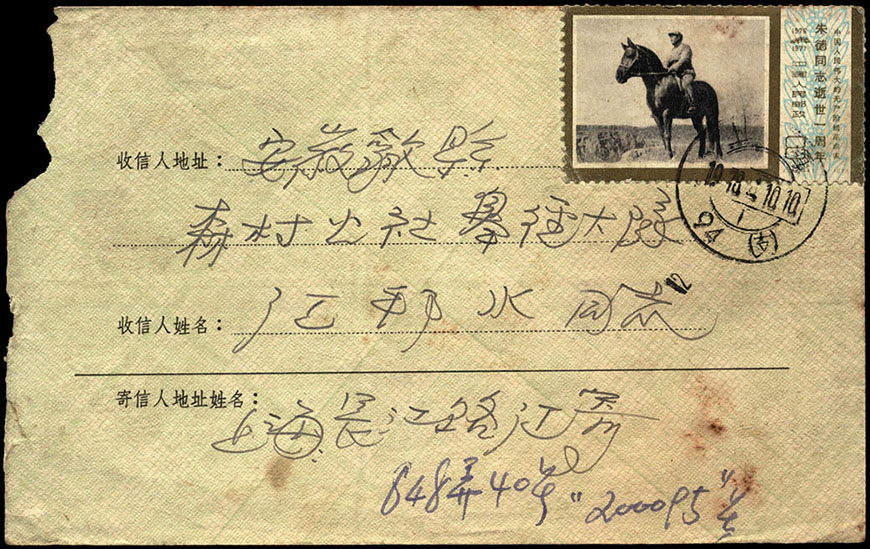 中国人民伟大的无产阶级革命家
朱德同志逝世一周年
1976-1977
中国人民邮政
收信人地址: 安徽歙县
森村公社 大队
收信人姓名: 江 水 同志
12
寄信人地址姓名: 上海长江路江寄
648弄40号 "200095"
24